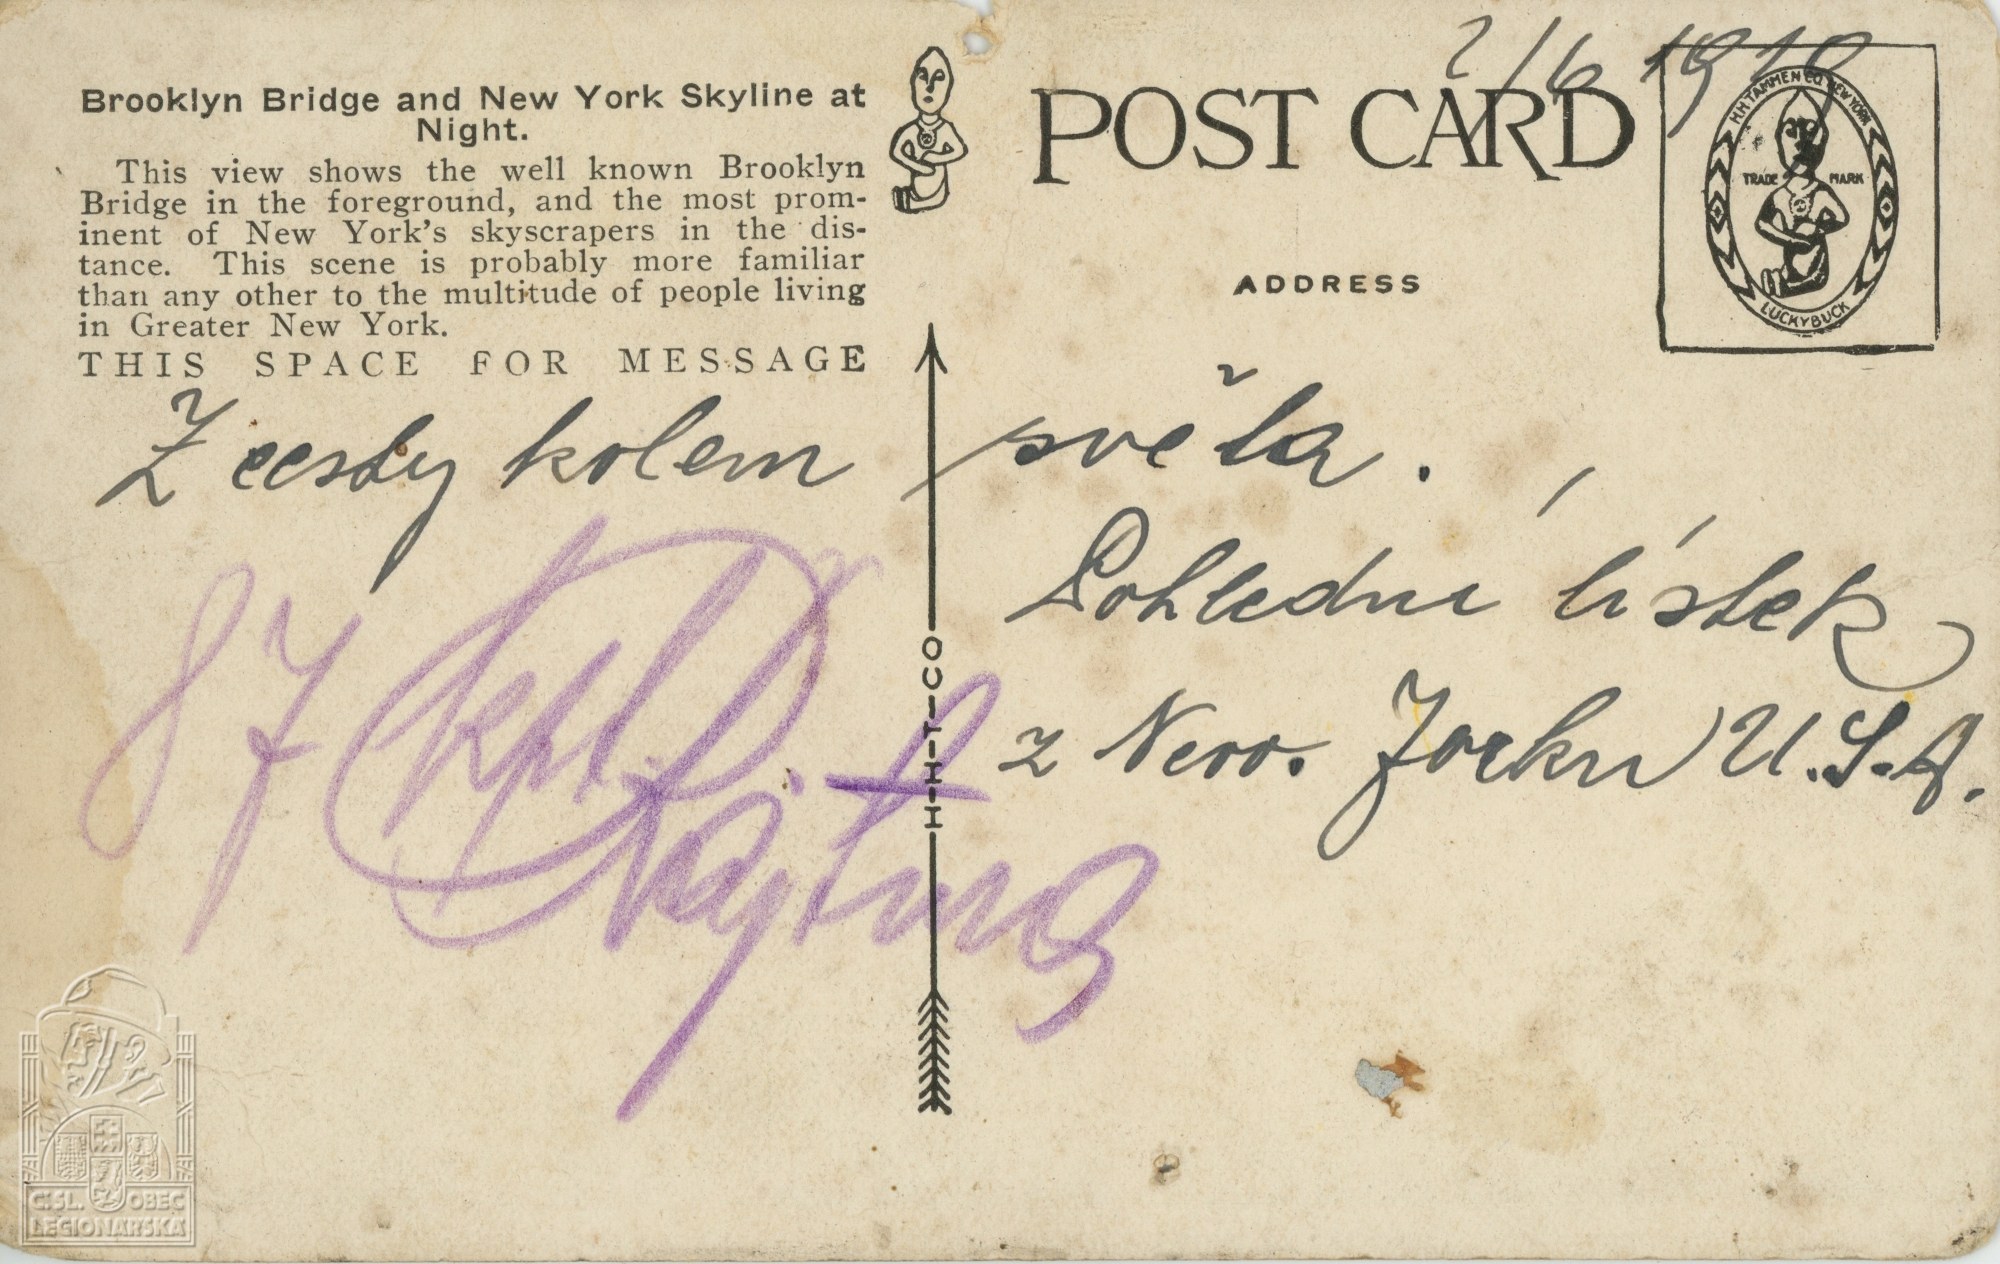 2/6 1919
Brooklyn Bridge and New York Skyline at
Night.
This view shows the well known Brooklyn
Bridge in the foreground, and the most prom-
inent of New York's skyscrapers in the dis-
tance. This scene is probably more familiar
than any other to the multitude of people living
in Greater New York.
THIS SPACE FOR MESSAGE
POST CARD
ADDRESS
H.H. TAMMEN CO. NEW YORK
TRADE MARK
LUCKYBUCK
Z cesty kolem světa.
Pohlední lístek
z New. Jorku U.S.A.
H-H-T-CO
87
ČSL. OBEC
LEGIONÁŘSKÁ